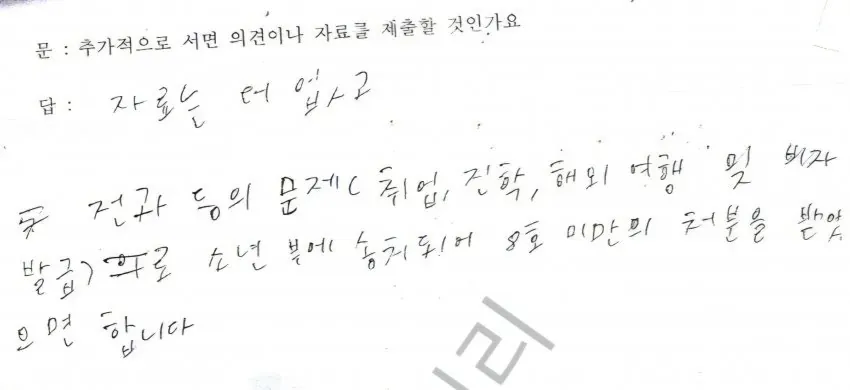 문 : 추가적으로 서면 의견이나 자료를 제출할 것인가요
답 : 자료는 더 없사고
전과 등의 문제( 취업, 진학, 해외 여행 및 비자
발급)으로 소년 부에 송치되어 8호 미만의 처분을 받았
으면 합니다
리